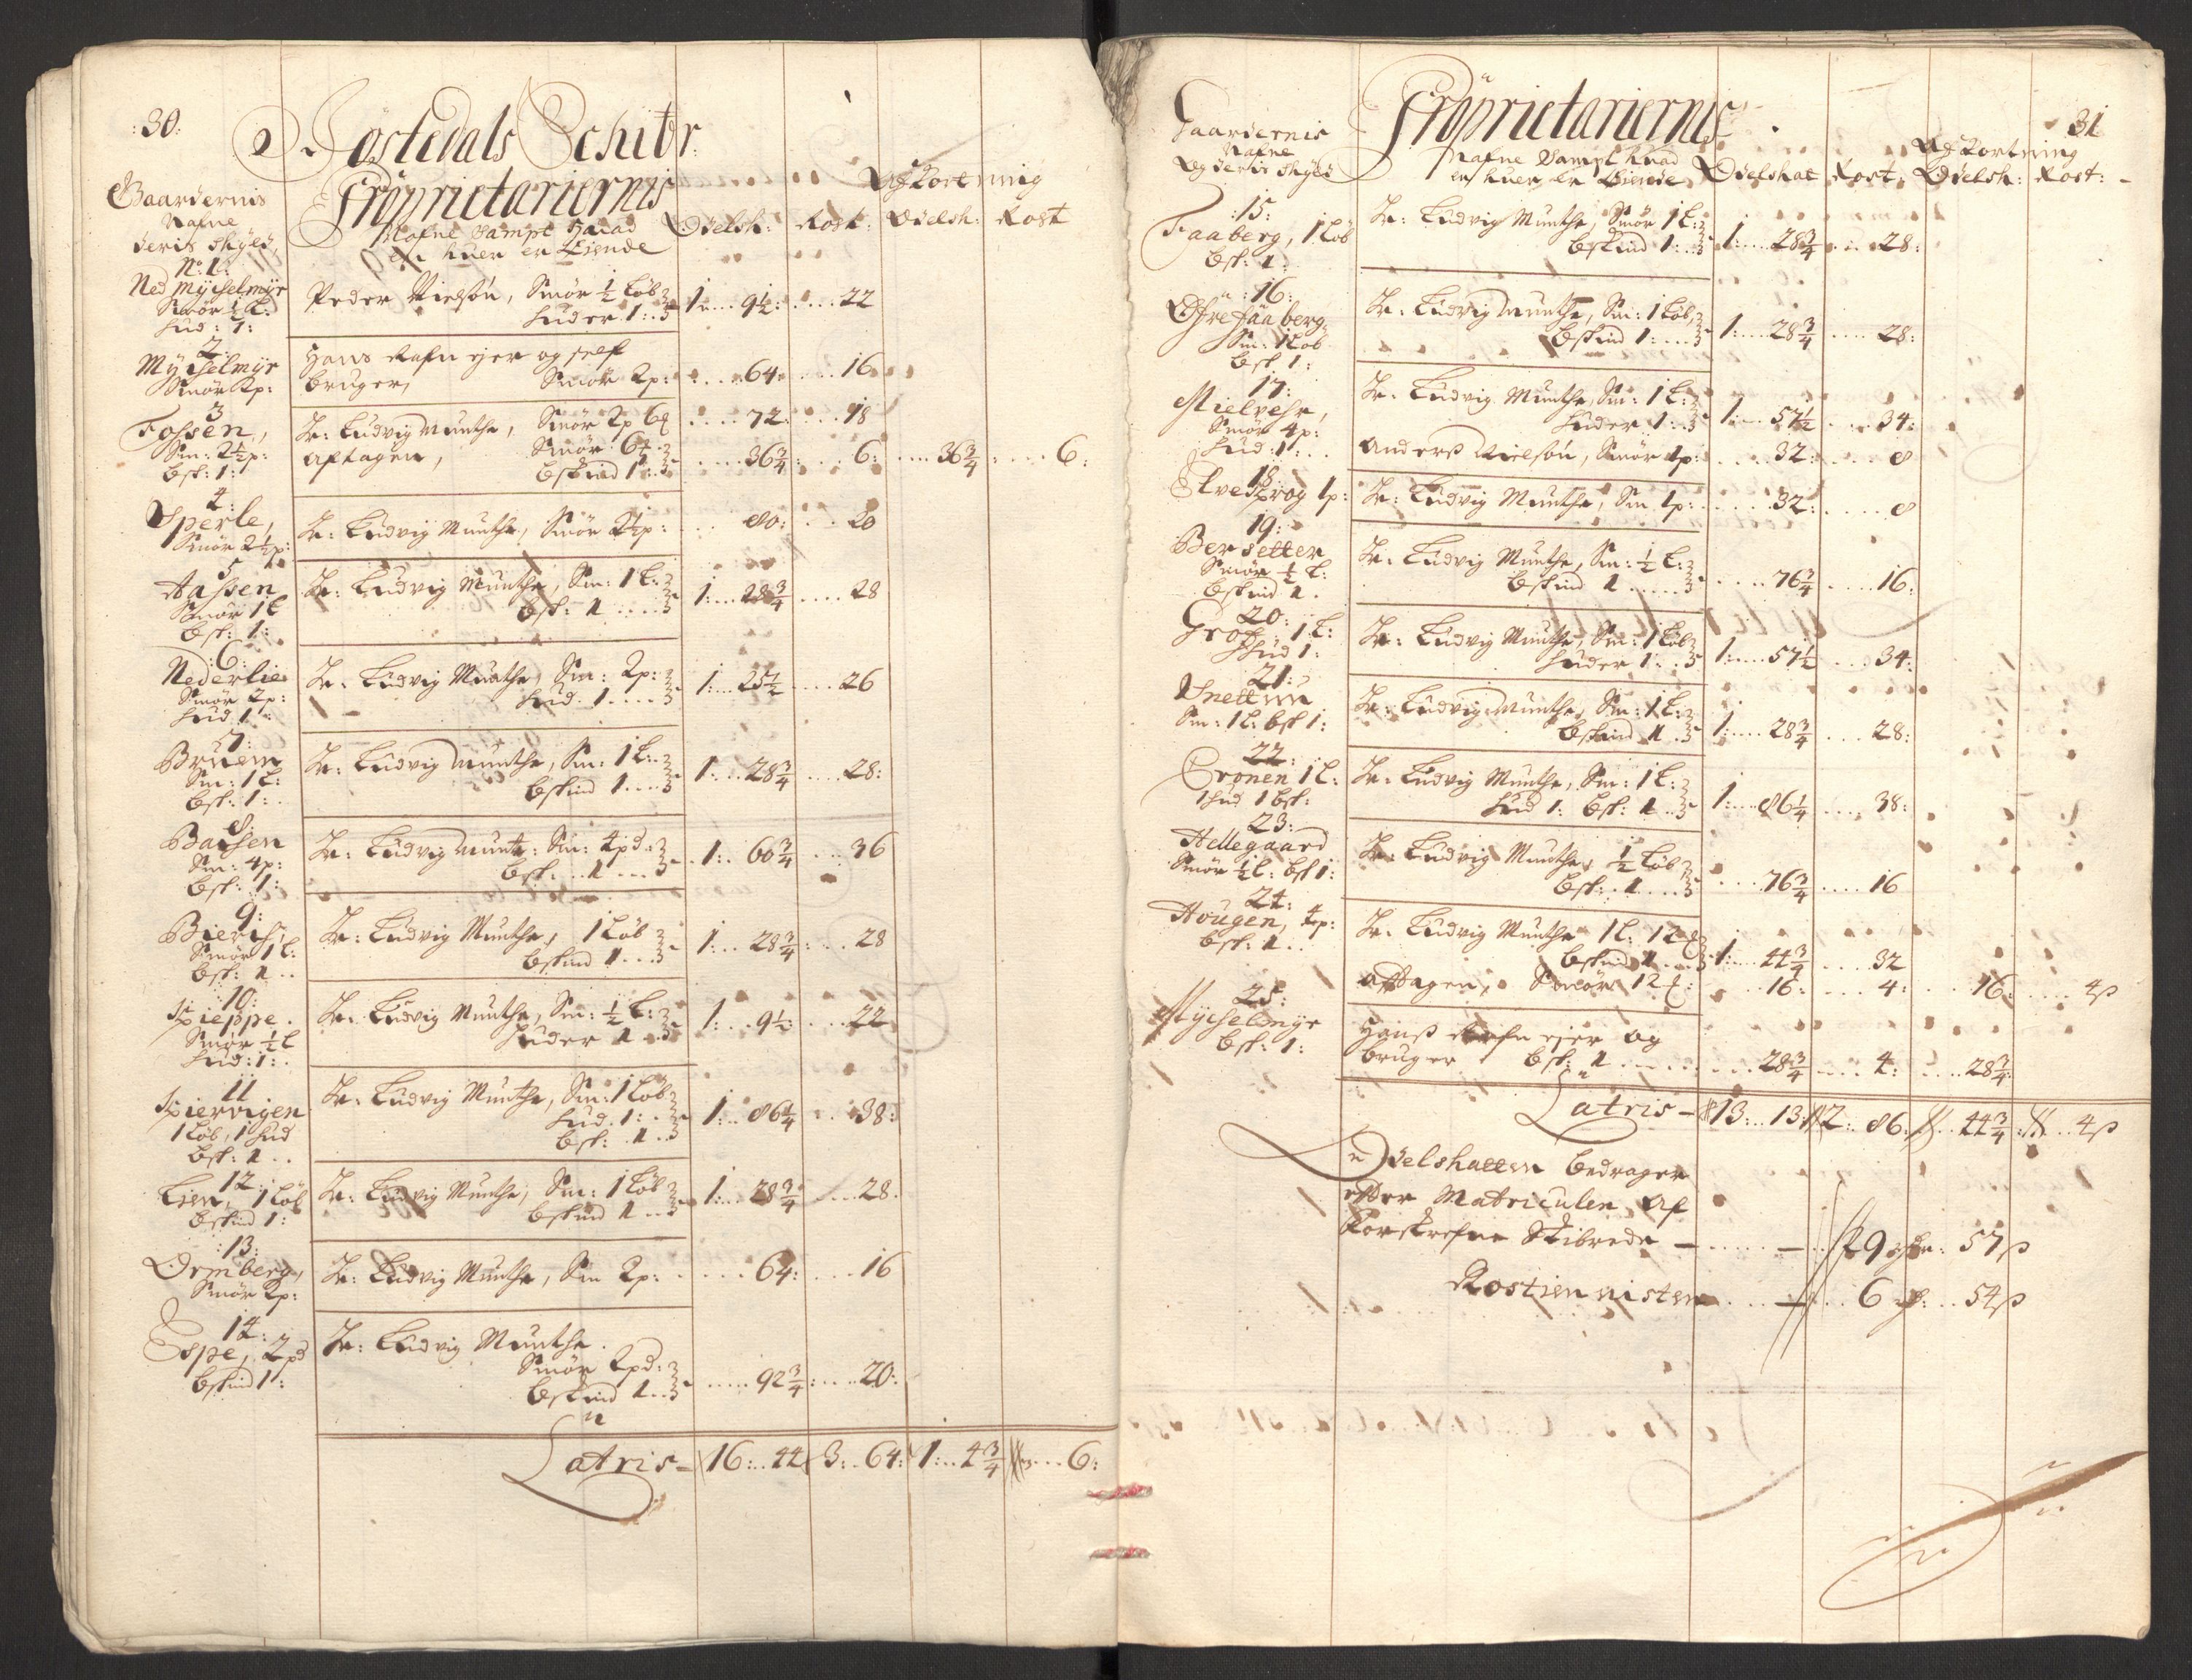 :30:
Jostedals Schibr
Gaardernis
Nafne
deris skyld,
Proprietariernis
Nafne sampt huad
en huer er Eiende
Afkortning
Odelsk: Rost: Odelsk: Rost
No: 1:
Ned Myckelmyr
Smør ½ L:
Hud: 1:
Peder Nielsøn, Smør ½ Løb
Huder 1: 1: 9½: 22
2:
Myckelmyr
Smør 2p:
Hans Rafn ejer og self
bruger, Smør 2p: 64: 16
3
Fossen,
Sm: 2½p:
bsk: 1:
Hr: Ludvig Munthe, Smør 2p 6 72: 18
Aftagen, Smør 6
bskind 1: 36¾: 6: 36¾: 6:
4:
Sperle,
Smør 2½p:
Hr: Ludvig Munthe, Smør 2½p: 80: 20
5
Aassen
Smør 1 L
bsk: 1:
Hr: Ludvig Munthe, Sm: 1 L:
bsk: 1 1: 28¾ 28
:6:
Nederlie
Smør 2p:
Hud 1:
Hr: Ludvig Munthe, Sm: 2p:
Hud. 1 1: 25½ 26
7:
Bruem
Sm: 1 L:
bsk: 1:
Hr: Ludvig Munthe, Sm: 1 L:
bskind 1 1: 28¾ 28:
8:
Backen
Sm: 4p:
bsk: 1:
Hr: Ludvig Munt: Sm: 4pd:
bsk: 1 1: 60¾ 36
9:
Bierck,
Smør 1 L:
bsk: 1
Hr: Ludvig Munthe, 1 Løb
bskind 1 1: 28¾: 28
10:
Kieppe.
Smør ½ L
Hud: 1:
Hr: Ludvig Munthe, Sm: ½ L:
Huder 1 1: 9½: 22
11
Kiervigen
1 Løb, 1 Hud
bsk: 1
Hr: Ludvig Munthe, Sm: 1 Løb
Hud. 1:
bsk: 1 1: 86¼ 38:
12:
Lien, 1 Løb
bskind 1:
Hr: Ludvig Munthe, Sm: 1 Løb
bskind 1 1: 28¾ 28.
:13:
Ormberg,
Smør 2p:
Hr: Ludvig Munthe, Sm 2p: 64: 16
14:
Espe, 2pd
bskind 1:
Hr: Ludvig Munthe.
Smør 2pd:
bskind 1 92¾: 20:
Latris 16: 44 3: 64: 1: 4¾ 6:
31
Gaardernis
Nafne
Og deris skyld
Proprietariernis
Nafne sampt huad
en huer er Eiende
Afkortning
Odelskat Rost: Odelsk: Rost:
:15:
Faaberg, 1 Løb
bsk: 1:
Hr: Ludvig Munthe, Smør 1 L:
bskind 1: 1: 28¾ 28:
:16:
Øfre faaberg
Sm: 1 Løb
bsk 1:
Hr: Ludvig Munthe, Sm: 1 Løb,
bskind 1: 1: 28¾ 28:
17:
Mielvehr,
Smør 4p:
Hud: 1:
Hr: Ludvig Munthe, Sm: 1 L:
Huder 1: 1: 57½ 34:
Anders Nielsøn, Smør 1p: 32: 8
18
Elvekrog 1p:
Hr: Ludvig Munthe, Sm 1p: 32: 8
19:
Bersetter
Smør ½ L:
bskind 1.
Hr: Ludvig Munthe, Sm: ½ L:
bskind 1 76¾ 16:
20:
Groff 1 L:
Hud 1:
Hr: Ludvig Munthe, Sm: 1 Løb
Huder 1: 1: 57½ 34:
21:
Snettun
Sm: 1 L: bsk 1:
Hr: Ludvig Munthe, Sm: 1 L:
bskind 1 1: 28¾ 28:
22:
Cronen 1 L:
1 Hud 1 bsk:
Hr: Ludvig Munthe, Sm: 1 L:
Hud 1: bsk: 1 1: 86¼ 38:
23:
Hellegaard
Smør ½ L: bsk 1:
Hr: Ludvig Munthe, ½ Løb
bsk: 1 76¾ 16
24:
Hougen, 4p:
bsk: 1
Hr: Ludvig Munthe 1 L: 12
bskind 1 1: 44¾ 32
Aftagen, Smør 12 16: 4: 16: 4ß
25:
Myckelmyr
bsk: 1:
Hanß Rafn ejer og
bruger bsk: 1 28¾ 4: 28¾
Latris 13: 13: 2: 86: 44¾: 4ß
Odelskatten bedrager
efter Matriculen, Af
forskrefne Skibrede 29 57ß
Rostiennisten 6 54ß